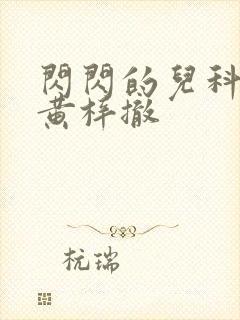 閃閃的兒科
黃梓撤
杭瑞